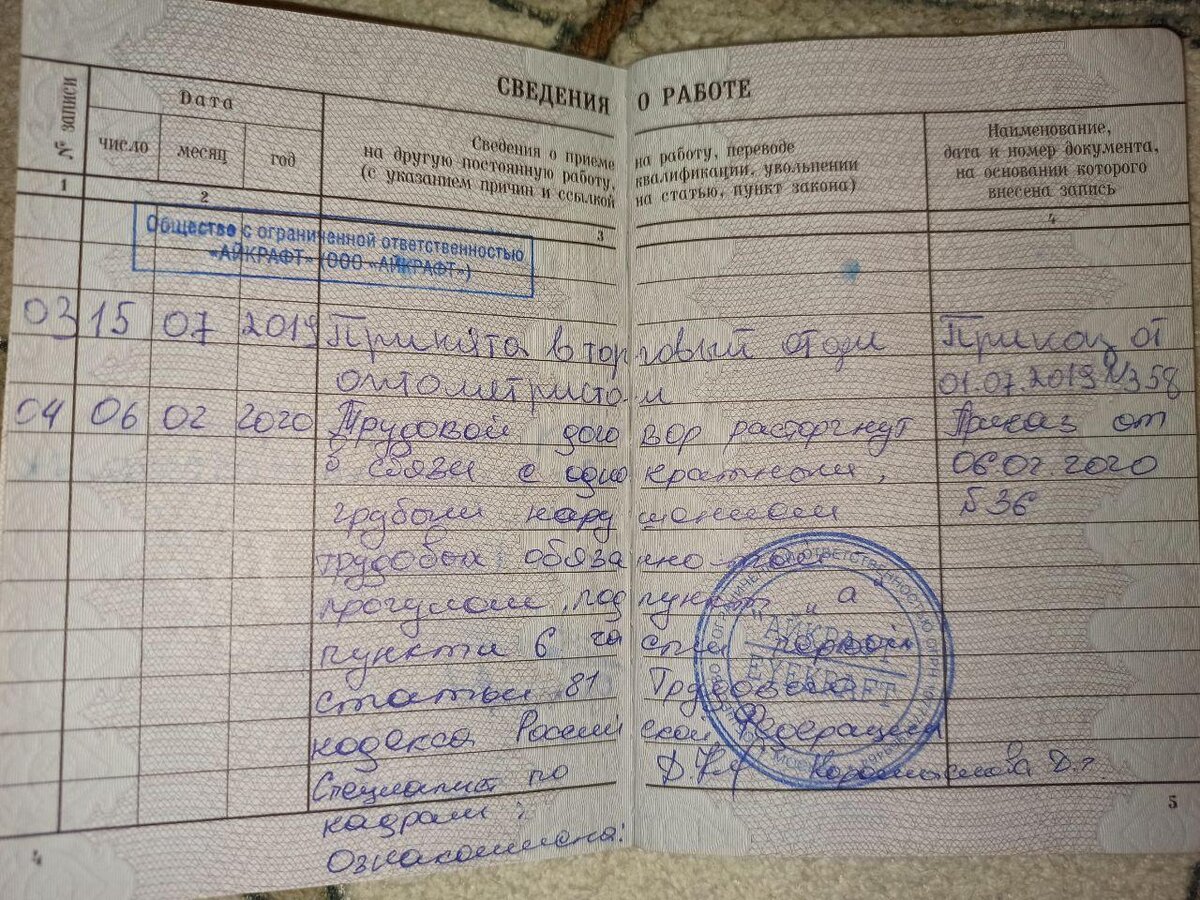 СВЕДЕНИЯ О РАБОТЕ
№ записи
Дата
число
месяц
год
Сведения о приеме на работу, переводе
на другую постоянную работу, квалификации, увольнении
(с указанием причин и ссылкой на статью, пункт закона)
Наименование,
дата и номер документа,
на основании которого
внесена запись
1
2
3
4
Общество с ограниченной ответственностью
«АЙКРАФТ» (ООО «АЙКРАФТ»)
03 15 07 2019 Принята в торговый отдел Приказ от
оптометристом 01.07.2019 №358
04 06 02 2020 Трудовой договор расторгнут Приказ от
в связи с однократным, 06 02 2020
грубым нарушением №36
трудовых обязанностей
прогулом, подпункт "а"
пункта 6 части первой
статьи 81 Трудового
кодекса Российской Федерации
Специалист по
кадрам:
Ознакомлена:
АЙКРАФТ
EYEKRAFT
4
5